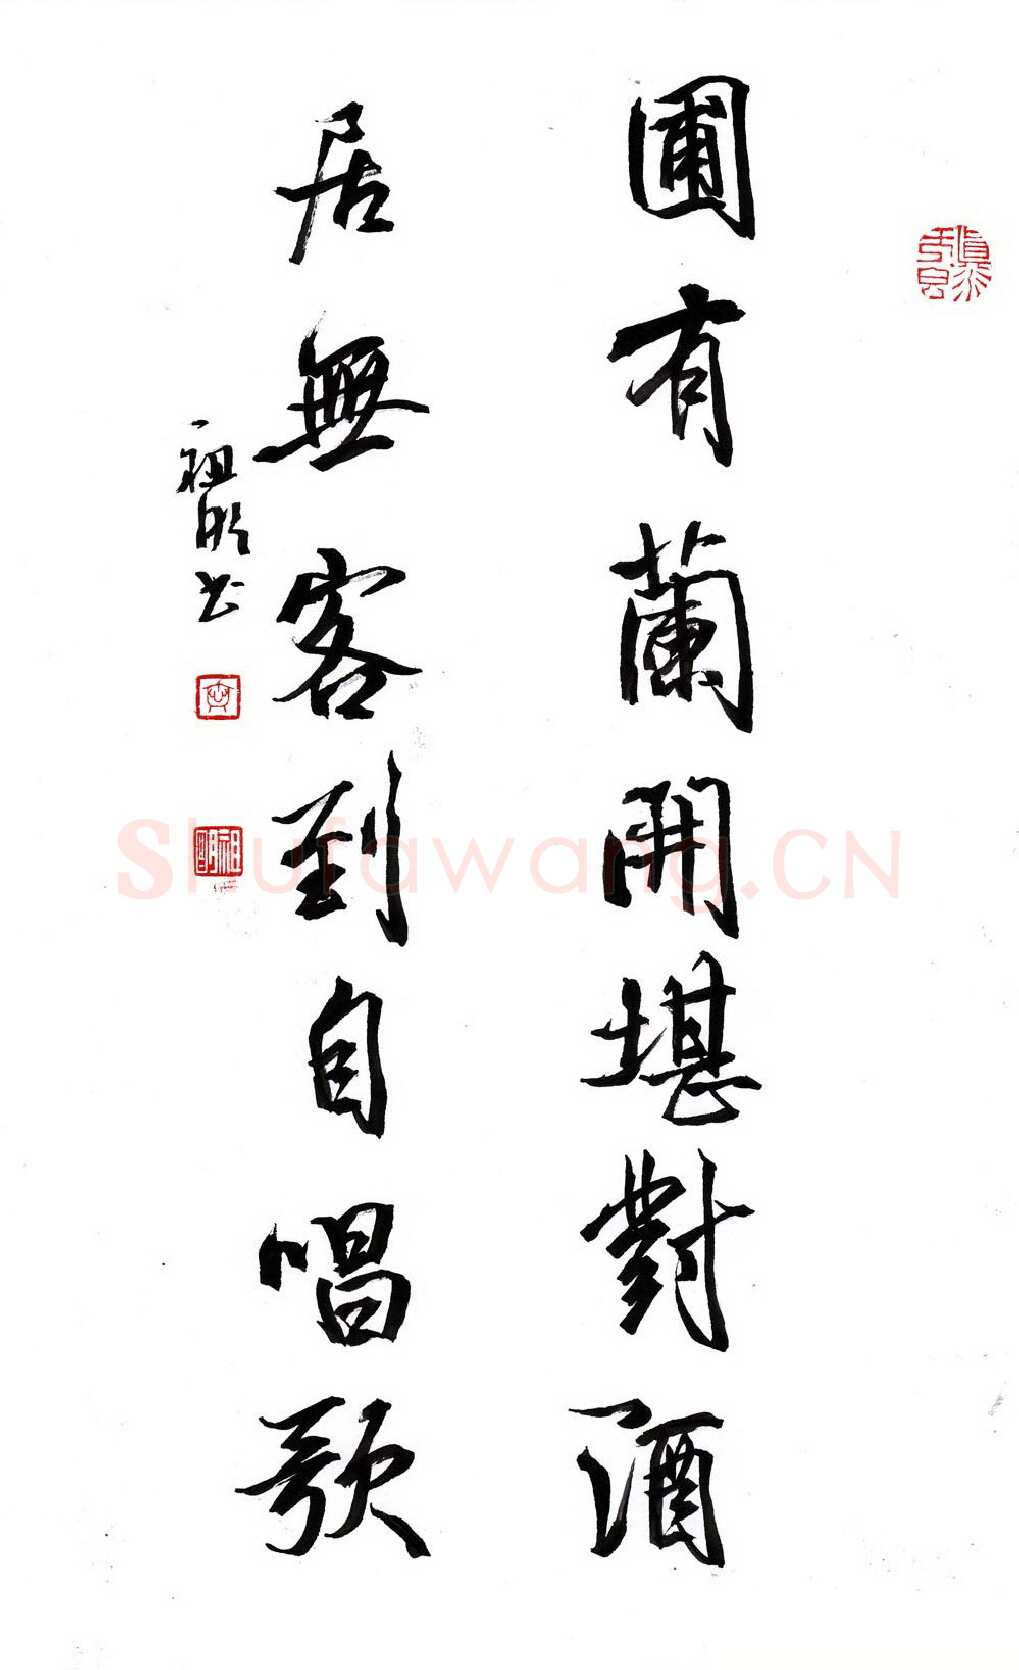 圃有蘭開堪對酒
居無客到自唱歌
祖明书
祖明
Shufawang.CN